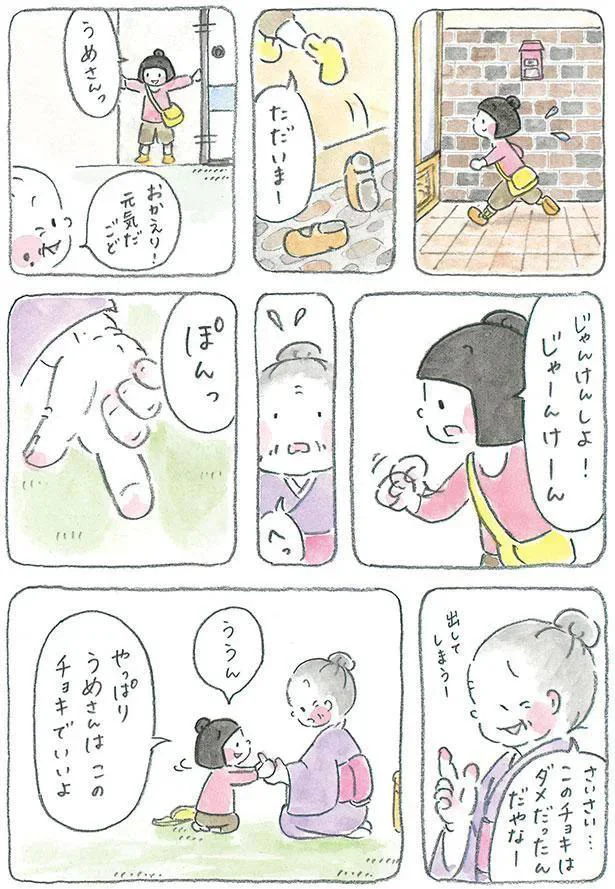 ただいまー
うめさんっ
おかえり！
元気だ
ごど
じゃんけんしよ！
じゃーんけーん
へっ
ぽんっ
出して
しまうー
さいさい…
このチョキは
ダメだったん
だやなー
ううん
やっぱり
うめさんは この
チョキでいいよ